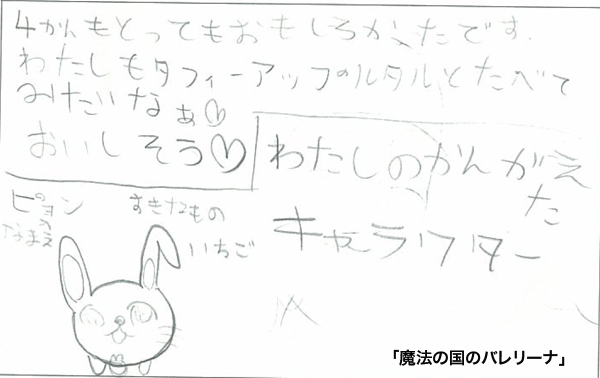 4かんもとってもおもしろかったです.
わたしもタフィーアップのルタルとたべて
みたいなぁ♡
おいしそう♡
わたしのかんがえ
た
キャラクター
ピョン
なまえ
すきなもの
いちご
「魔法の国のバレリーナ」